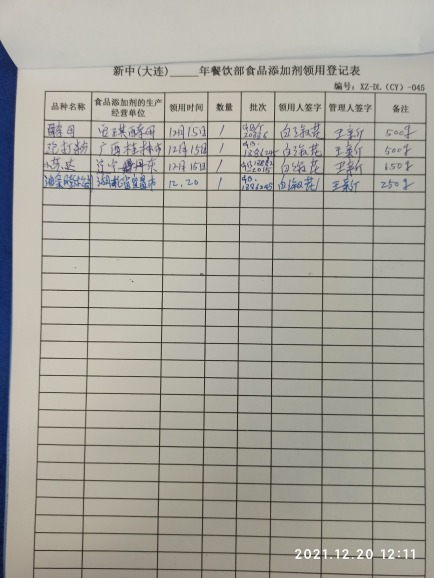 新中(大连)_____年餐饮部食品添加剂领用登记表
编号：XZ-DL(CY)-045
品种名称 食品添加剂的生产经营单位 领用时间 数量 批次 领用人签字 管理人签字 备注
酵母 12月15日 1 白淑花 王新 500g
泡打粉 广西桂林市 12月15日 1 白淑花 王新 500g
小苏达 辽宁丹东 12月15日 1 白淑花 王新 150g
湖北宜昌市 12.20 1 白淑花 王新 250g
2021.12.20 12:11